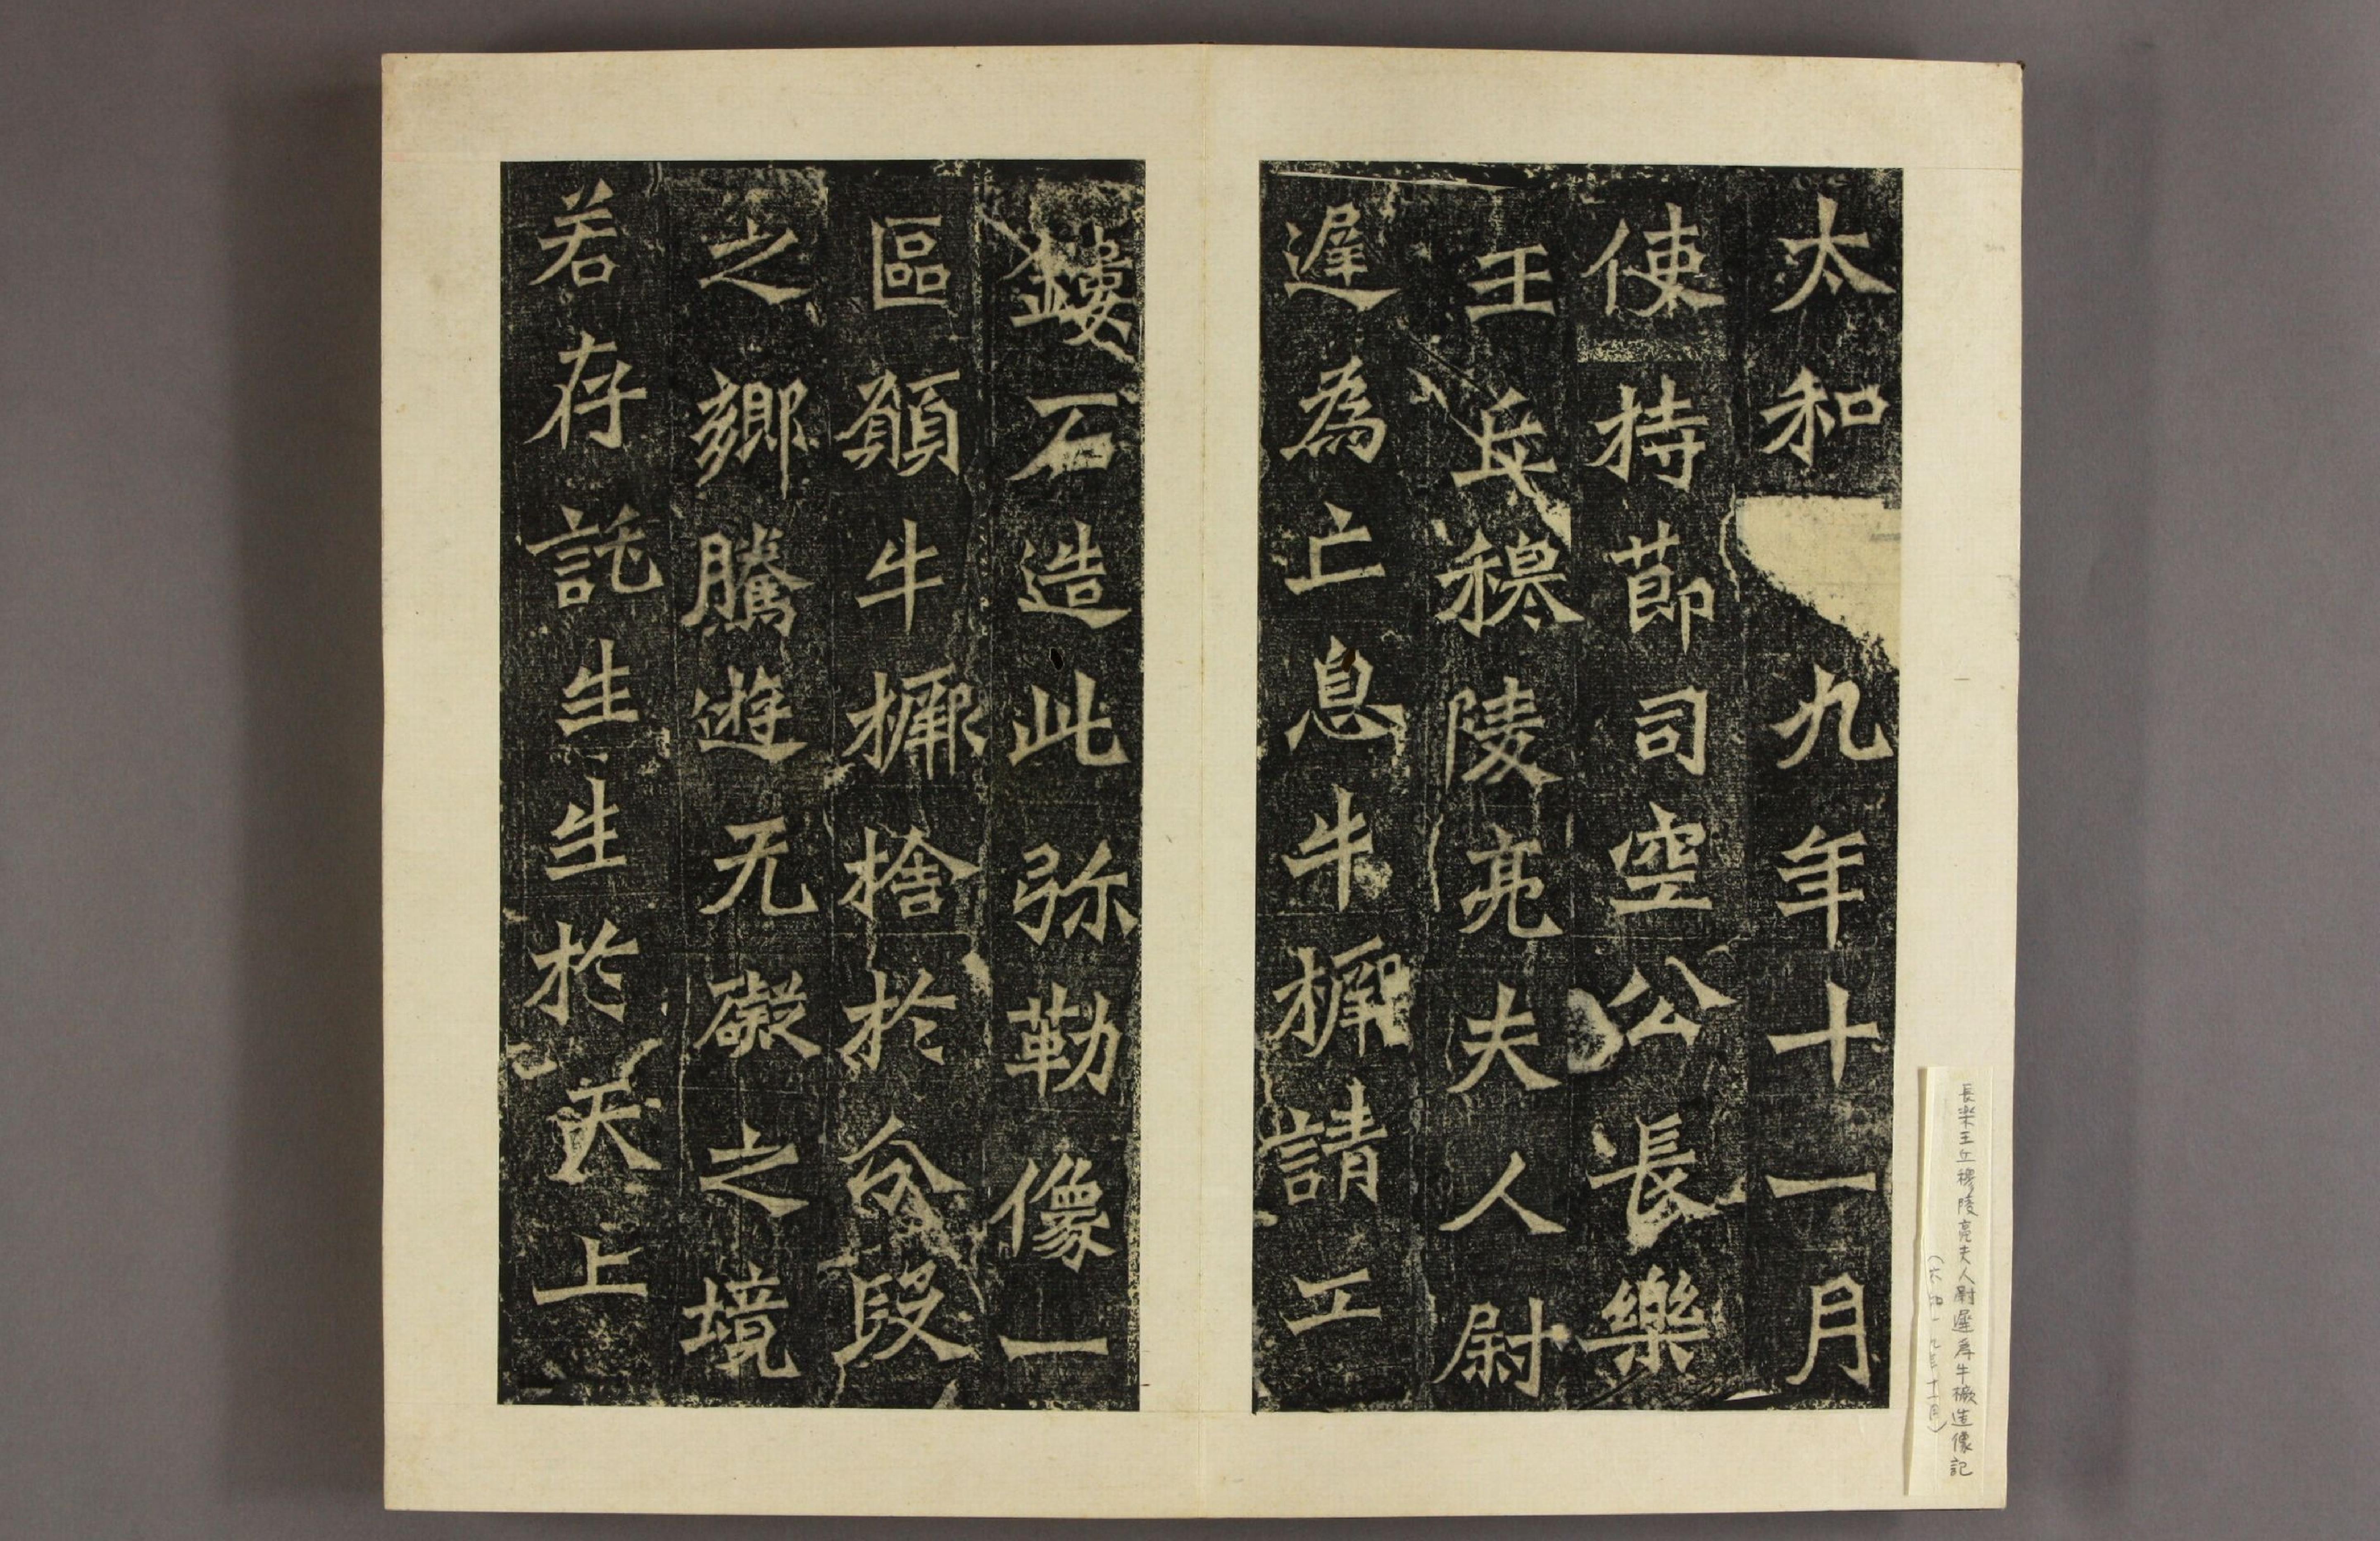 太和九年十一月
使持節司空公長樂
王丘穆陵亮夫人尉
遲為亡息牛橛請工
鏤石造此弥勒像一
區願牛橛捨於分段
之鄉騰遊无礙之境
若存託生生於天上
長樂王丘穆陵亮夫人尉遲為牛橛造像記
(太和十九年十一月)